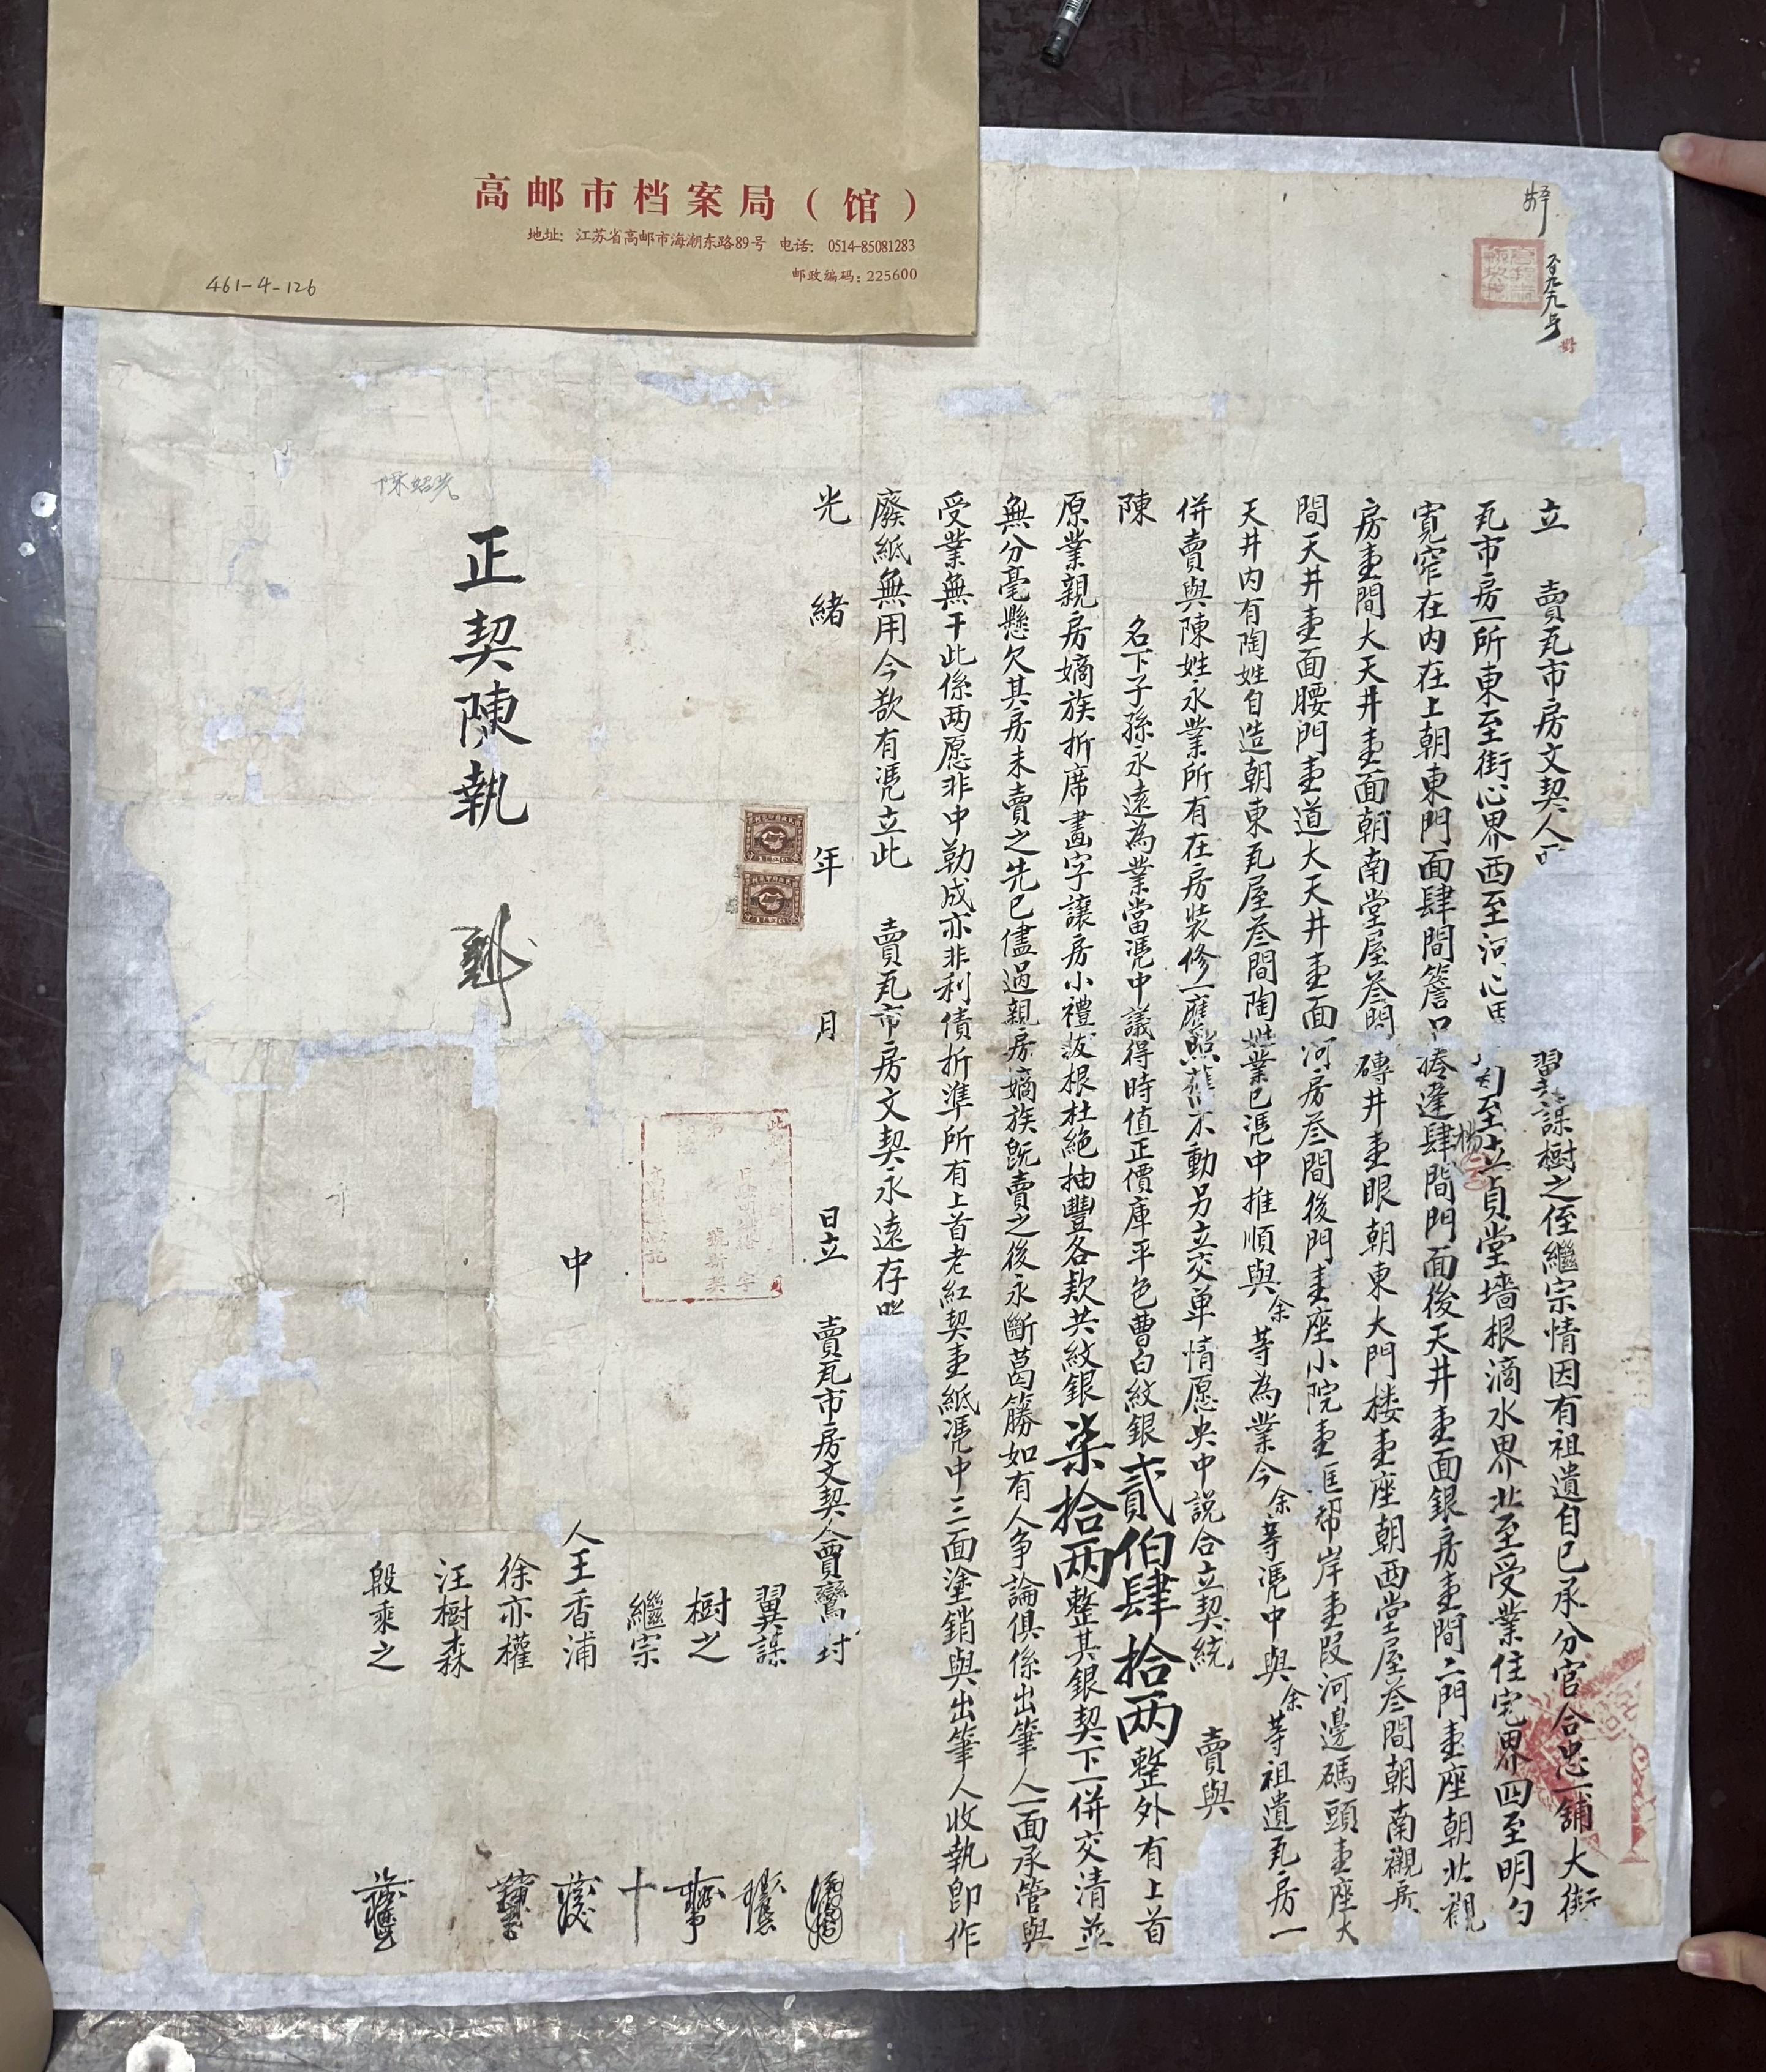 高邮市档案局(馆)
地址: 江苏省高邮市海潮东路89号 电话: 0514-85081283
邮政编码: 225600
461-4-126
立 賣瓦市房文契人 翼謀樹之侄繼宗情因有祖遺自己承分官合忠一舖大街
瓦市房一所東至街心界西至河心 南至立貞堂墻根滴水界北至受業住宅界四至明勻
寬窄在內在上朝東門面肆間簷口捲篷肆間門面後天井壹面銀房壹間二門壹座朝北觀
房壹間大天井壹面朝南堂屋叁間磚井壹眼朝東大門楼壹座朝西堂屋叁間朝南襯房
間天井壹面腰門壹道大天井壹面河房叁間後門壹座小院壹匡帮岸壹段河邊碼頭壹座大
天井內有陶姓自造朝東瓦屋叁間陶姓業已憑中推順與余等為業今余等憑中與余等祖遺瓦房一
併賣與陳姓永業所有在房裝修一應照舊不動另立交单情愿央中説合立契統 賣與
陳 名下子孫永遠為業當憑中議得時值正價庫平色曹白紋銀貳伯肆拾两整外有上首
原業親房嫡族折席畫字讓房小禮拔根杜絶抽豐各欵共紋銀柒拾两整其銀契下一併交清並
無分毫懸欠其房未賣之先已儘過親房嫡族既賣之後永斷葛籐如有人争論俱係出筆人一面承管與
受業無干此係两愿非中勒成亦非利債折準所有上首老紅契壹紙憑中三面塗銷與出筆人收執即作
廢紙無用今欲有憑立此 賣瓦市房文契永遠存照
光緒 年 月 日立 賣瓦市房文契人賈鸞封
翼謀
樹之
繼宗
中 人王香浦
徐亦權
汪樹森
殷乘之
正契陳執
陳紹光